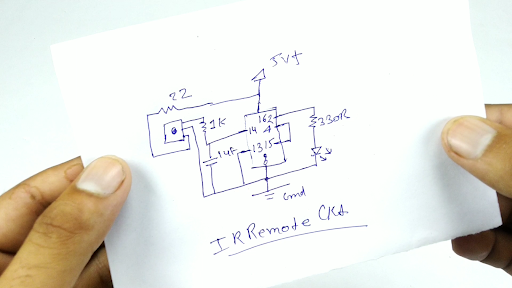 5V+
22
1K
16 2
14 4
1uf
13 15
8
330R
Gnd
IR Remote Ckt